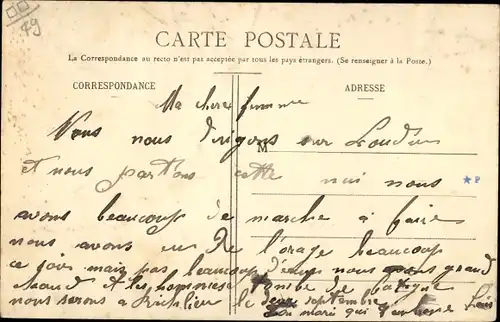 49
CARTE POSTALE
La Correspondance au recto n'est pas acceptée par tous les pays étrangers. (Se renseigner à la Poste.)
CORRESPONDANCE
ADRESSE
Ma chere femme
M
Nous nous dirigons sur Loudun
et nous partons cette nui nous
avons beaucoup de marche a faire
nous avons eu De l'orage beaucoup
ce soir mais pas beaucoup d'eau nous pas grand
chaud et les hommes tombe de fatigue
nous serons a Richelieu le deux septembre
ton mari qui t'embrasse Louis